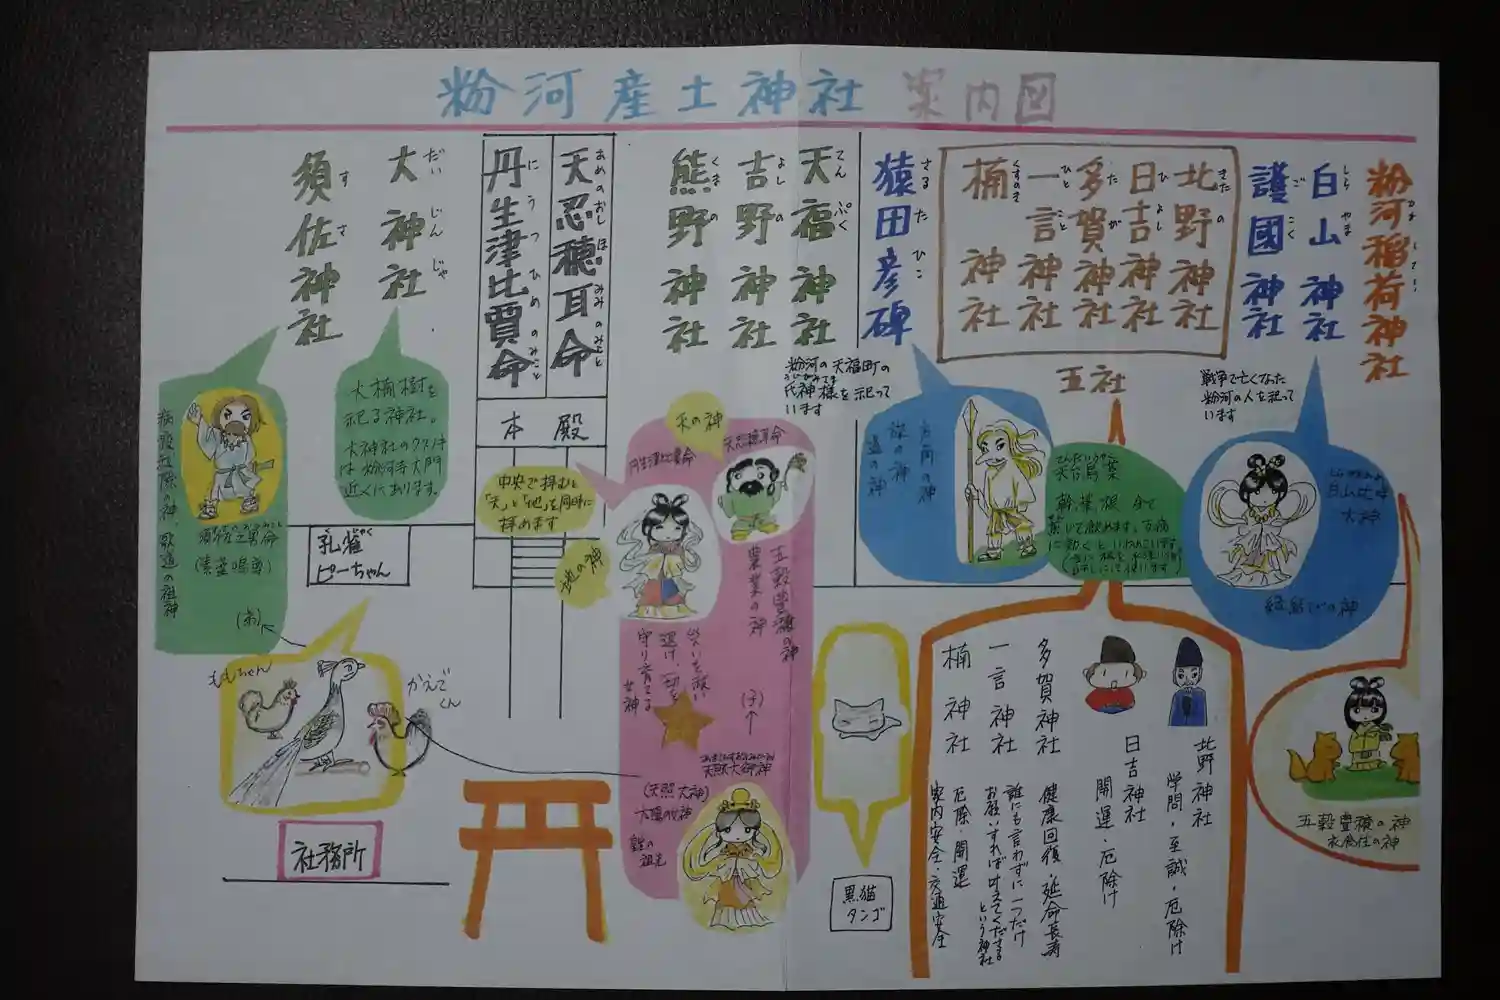 粉河産土神社 案内図
粉河稲荷神社
白山神社
しら やま
護國神社
ご こく
戦争で亡くなった
粉河の人を祀って
います
北野神社
きた の
日吉神社
ひ よし
多賀神社
た が
一言神社
ひと こと
楠神社
くすのき
五社
猿田彦碑
さる た ひこ
天福神社
てん ぷく
吉野神社
よし の
熊野神社
くま の
粉河の天福町の
氏神様を祀って
います
天忍穂耳命
あめ の おし ほ みみ の みこと
丹生津比賣命
に う つ ひめ の みこと
本殿
大神社
だい じん じゃ
須佐神社
す さ
大楠樹を
祀る神社。
大神社のクスノキ
は粉河寺大門
近くにあります。
病疫社除の神、歌道の祖神
須佐之男命
(素盞嗚尊)
孔雀
ピーちゃん
ももちゃん
かえで
くん
社務所
中央で拝むと
「天」と「地」を同時に
拝めます
天の神
地の神
丹生津比賣命
天忍穂耳命
五穀豊穣の神
農業の神
災いを祓い
退け、
守り育てる
女神
天照大御神
(天照大神)
太陽の神
黒猫
タンゴ
方角の神
旅の神
道の神
天台烏薬
幹、葉、根、全て
白山比咩
大神
縁結びの神
北野神社
学問・至誠・厄除け
日吉神社
開運・厄除け
多賀神社
健康回復・延命長寿
一言神社
誰にも言わずに一つだけ
お願いすれば叶えてくださる
という神社
楠神社
厄除・開運
家内安全・交通安全
五穀豊穣の神
衣食住の神